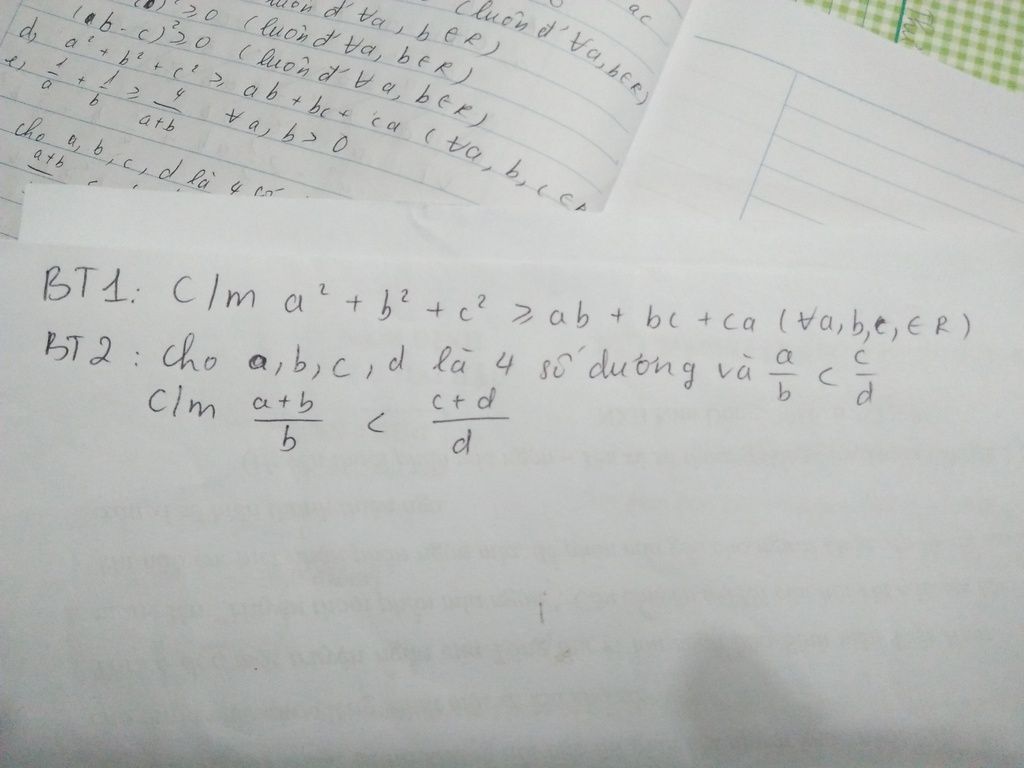 ac
≥ 0 (luôn đ' ∀a, b ∈ R) (luôn đ' ∀a, b∈R)
(ab - c)² ≥ 0 (luôn đ' ∀a, b∈R)
d, a² + b² + c² ≥ ab + bc + ca (∀a, b, c ∈ R
e, 1/a + 1/b ≥ 4/(a+b) ∀a, b > 0
Cho a, b, c, d là 4
a+b
BT1: C/m a² + b² + c² ≥ ab + bc + ca (∀a,b,c, ∈ R)
BT2: Cho a, b, c, d là 4 số dương và a/b < c/d
C/m (a+b)/b < (c+d)/d